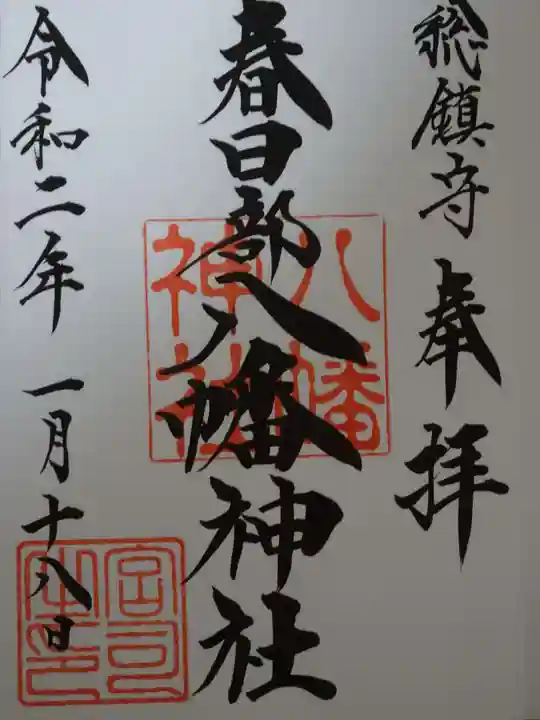 総鎮守 奉拝
春日部八幡神社
八幡神社
令和二年 一月十八日
宮司之印